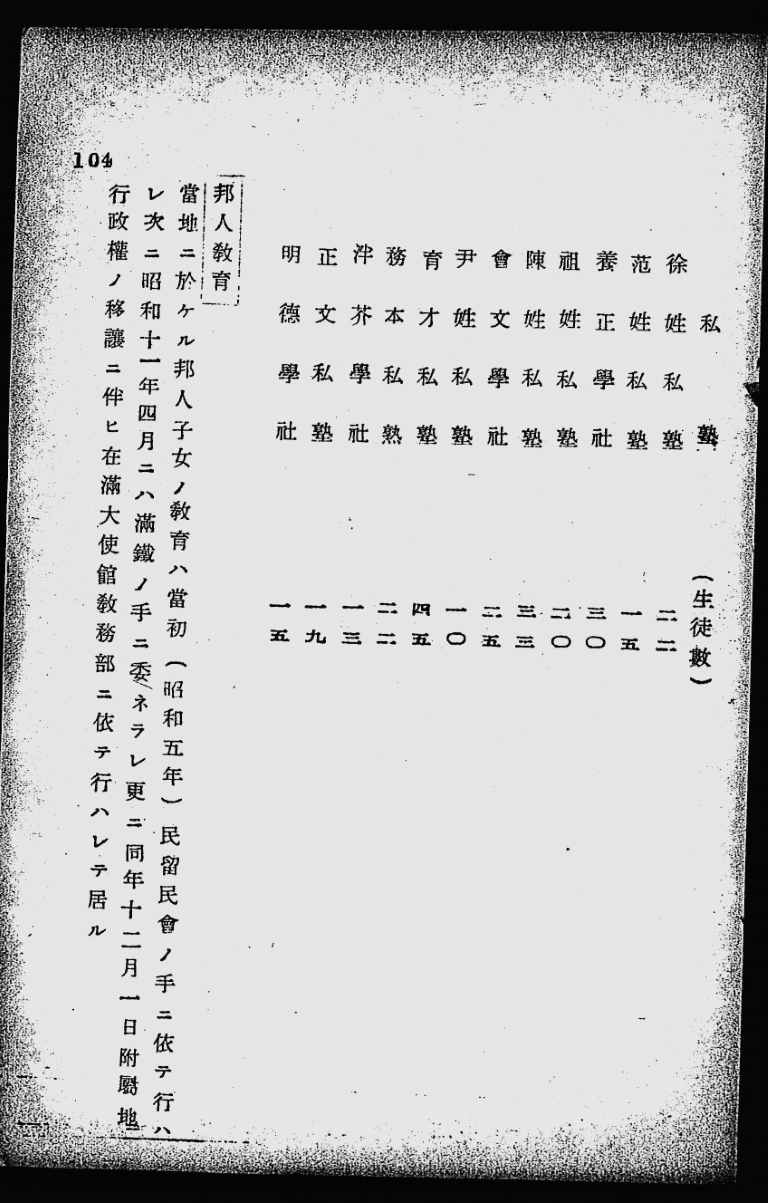 私塾 (生徒數)
徐姓私塾 二二
范姓私塾 一五
養正學社 三〇
祖姓私塾 二〇
陳姓私塾 三三
會文學社 二五
尹姓私塾 一〇
育才私塾 四五
務本私熟 二二
泮芥學社 一三
正文私塾 一九
明德學社 一五
邦人敎育
當地ニ於ケル邦人子女ノ敎育ハ當初(昭和五年)民留民會ノ手ニ依テ行ハ
レ次ニ昭和十一年四月ニハ滿鐵ノ手ニ委ネラレ更ニ同年十二月一日附屬地
行政權ノ移讓ニ伴ヒ在滿大使館敎務部ニ依テ行ハレテ居ル
104